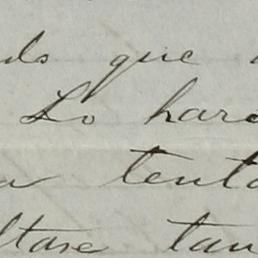 que
Lo hare
tenta
ltase tan